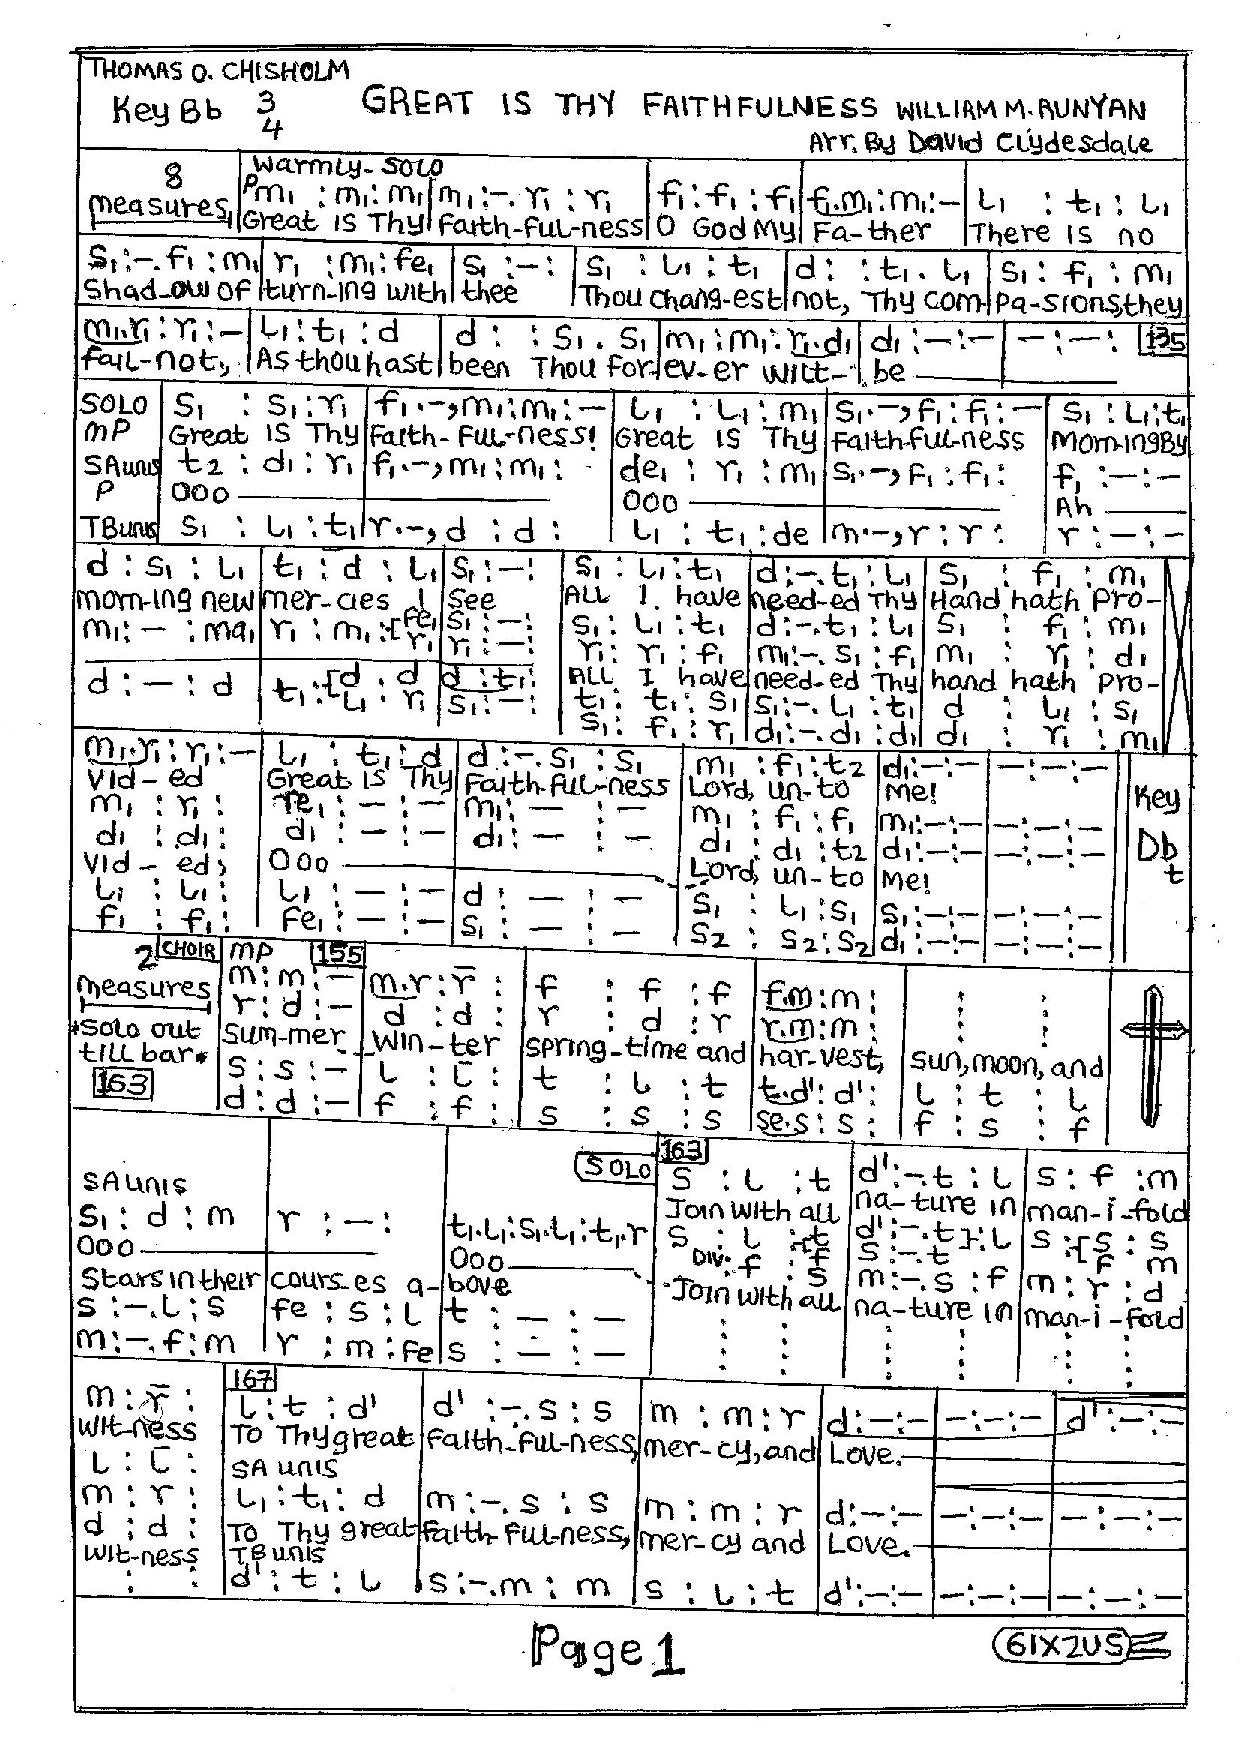 THOMAS O. CHISHOLM
Key Bb 3/4 GREAT IS THY FAITHFULNESS WILLIAM M. RUNYAN
Arr. By David Clydesdale
8 measures
Warmly-SOLO
P m₁ : m₁ : m₁ | m₁ :-. r₁ : r₁ | f₁ : f₁ : f₁ | f₁.m₁ : m₁ :- | L₁ : t₁ : L₁
Great is Thy | Faith-ful-ness | O God My | Fa-ther | There is no
S₁ :-. f₁ : m₁ | r₁ : m₁ : fe₁ | S₁ :-: | S₁ : L₁ : t₁ | d : : t₁. L₁ | S₁ : f₁ : m₁
Shad-ow of | turn-ing with | thee | Thou chang-est | not, Thy com | Pa-sions, they
m₁.r₁ : r₁ :- | L₁ : t₁ : d | d : : S₁ . S₁ | m₁ : m₁ : r₁.d₁ | d₁ :-:- | -:-: 135
fail-not, | As thou hast | been Thou for- | ev-er wilt- | be
SOLO S₁ : S₁ : r₁ | f₁ .-, m₁ : m₁ :- | L₁ : L₁ : m₁ | S₁ .-, f₁ : f₁ :- | S₁ : L₁ : t₁
MP Great is Thy | Faith-Ful-ness! | Great is Thy | Faith-ful-ness | Morning By
SA unis t₂ : d₁ : r₁ | f₁ .-, m₁ : m₁ : | de₁ : r₁ : m₁ | S₁ .-, f₁ : f₁ : | f₁ :-:-
P OOO | OOO | Ah
TB unis S₁ : L₁ : t₁ | r .-, d : d : | L₁ : t₁ : de | m .-, r : r : | r :-:-
d : S₁ : L₁ | t₁ : d : L₁ | S₁ :-: | S₁ : L₁ : t₁ | d :-. t₁ : L₁ | S₁ : f₁ : m₁
morn-ing new | mer-cies ! | See | All I have | need-ed Thy | Hand hath Pro-
m₁ :- : ma₁ | r₁ : m₁ : [fe₁ r₁ | S₁ :-: | S₁ : L₁ : t₁ | d :-. t₁ : L₁ | S₁ : f₁ : m₁
r₁ :-: | r₁ : r₁ : f₁ | m₁ :-. S₁ : f₁ | m₁ : r₁ : d₁
d :- : d | t₁ : [d . d | d : t₁ : | All I have | need-ed Thy | hand hath Pro-
L₁ . r₁ | S₁ :-: | t₁ : t₁ : S₁ | S₁ :-. L₁ : t₁ | d : L₁ : S₁
S₁ : f₁ : r₁ | d₁ :-. d₁ : d₁ | d₁ : r₁ : m₁
m₁.r₁ : r₁ :- | L₁ : t₁ : d | d :-. S₁ : S₁ | m₁ : f₁ : t₂ | d₁ :-:- | -:-:-
Vid-ed | Great is Thy | Faith-ful-ness | Lord, un-to | Me!
m₁ : r₁ : | re₁ :-:- | m₁ :-:- | m₁ : f₁ : f₁ | m₁ :-:- | -:-:- Key
d₁ : d₁ : | d₁ :-:- | d₁ :-:- | d₁ : d₁ : t₂ | d₁ :-:- | -:-:- Db
Vid-ed, | OOO | Lord, un-to | Me! t
L₁ : L₁ : | L₁ :-:- | d :-:- | S₁ : L₁ : S₁ | S₁ :-:- | -:-:-
f₁ : f₁ : | fe₁ :-:- | S₁ :-:- | S₂ : S₂ : S₂ | d₁ :-:- | -:-:-
2 measures CHOIR MP 155
m : m :- | m.r : r : | f : f : f | f.m : m : | : :
r : d :- | d : d : | r : d : r | r.m : m : | : :
*Solo out till bar* 163
Sum-mer | win-ter | spring-time and | har-vest, | sun, moon, and
S : S :- | L : L : | t : L : t | t.d' : d' : | L : t : L
d : d :- | f : f : | S : S : S | se.s : S : | f : S : f
SOLO 163 S : L : t | d' :-. t : L | S : f : m
SA unis Join with all | na-ture in | man-i-fold
S₁ : d : m | r :-: | t₁.L₁ : S₁.L₁ : t₁.r | S : L : [t | d' :-. t } : L | S : [S : S
OOO | OOO | Div. f : f | S :-. t | f m
Stars in their | cours-es a- | bove | S
Join with all | na-ture in | man-i-fold
S :-. L : S | fe : S : L | t :-:- | m :-. S : f | m : r : d
m :-. f : m | r : m : fe | S :-:-
m : r : | 167 L : t : d' | d' :-. S : S | m : m : r | d :-:- | -:-:- | d' :-:-
wit-ness | To Thy great | Faith-ful-ness, | mer-cy, and | Love.
L : L : | SA unis
m : r : | L₁ : t₁ : d | m :-. S : S | m : m : r | d :-:- | -:-:- | -:-:-
d : d : | To Thy great | Faith-ful-ness, | mer-cy and | Love.
wit-ness | TB unis
: : | d' : t : L | S :-. m : m | S : L : t | d' :-:- | -:-:- | -:-:-
Page 1
61X2US